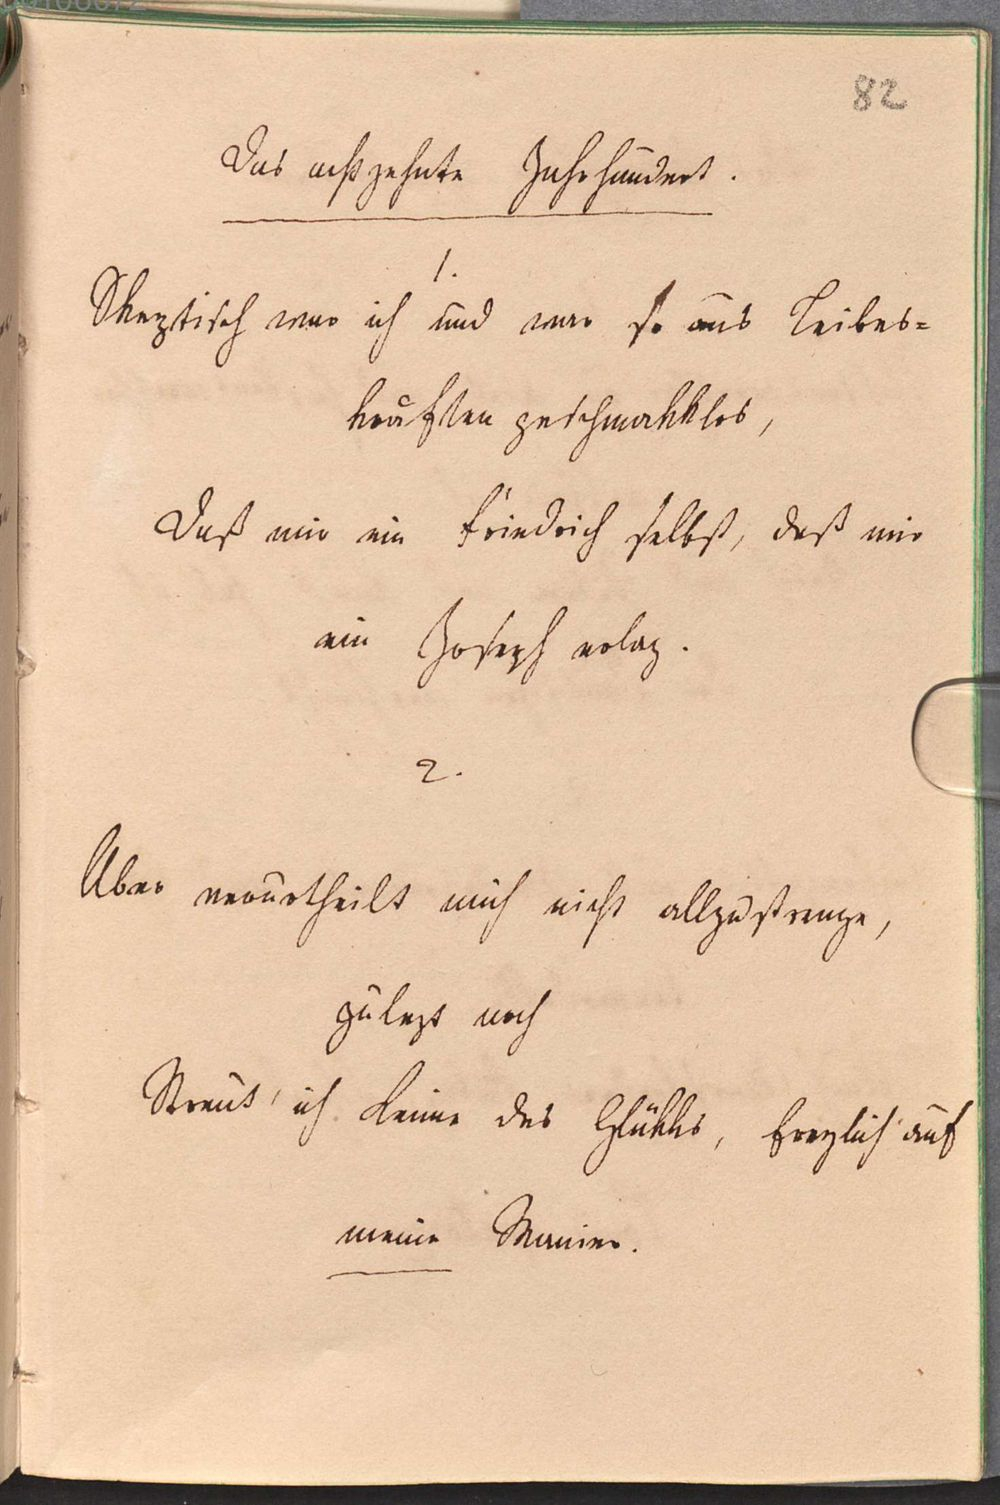 82
Das achtzehnte Jahrhundert.
1.
Skeptisch war ich und war so aus Leibes=
kräften geschmakklos,
Daß mir ein Friedrich selbst, daß mir
ein Joseph erlag.
2.
Aber verurtheilt mich nicht allzustrenge,
zulezt noch
Streut' ich Keime des Glükks, freylich auf
meine Manier.